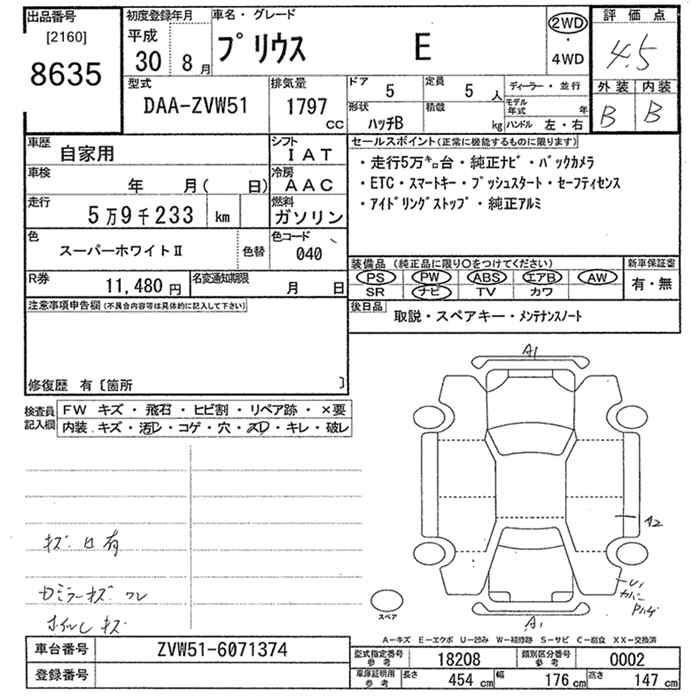 出品番号
[2160]
8635
初度登録年月
平成
30年 8月
車名・グレード
プリウス E
2WD
・
4WD
評価点
4.5
外装 内装
B B
型式
DAA-ZVW51
排気量
1797
CC
ドア 5
定員 5 人
形状
ハッチB
積載
kg
ディーラー・並行
モデル年式 年
ハンドル 左・右
車歴
自家用
シフト
IAT
車検
年 月( 日)
冷房
AAC
走行
5万9千233 km
燃料
ガソリン
色
スーパーホワイトⅡ
色替
色コード
040
R券
11,480 円
名変通知期限
月 日
セールスポイント(正常に機能するものに限ります)
・走行5万㌔台・純正ナビ・バックカメラ
・ETC・スマートキー・プッシュスタート・セーフティセンス
・アイドリングストップ・純正アルミ
装備品(純正品に限り○をつけてください)
PS PW ABS エアB AW
SR ナビ TV カワ
新車保証書
有・無
後日品
取説・スペアキー・メンテナンスノート
注意事項申告欄(不具合内容等は具体的に記入して下さい)
修復歴 有〔箇所 〕
検査員
記入欄
FW キズ・飛石・ヒビ割・リペア跡・×要
内装 キズ・汚レ・コゲ・穴・スレ・キレ・破レ
キズ 凹 有
ホイルキズ
A1
A2
U1
A1
スペア
A−キズ E−エクボ U−凹み W−補修跡 S−サビ C−腐食 XX−交換済
車台番号
ZVW51-6071374
登録番号
型式指定番号
参考
18208
類別区分番号
参考
0002
車庫証明用
参考
長さ 454 cm
幅 176 cm
高さ 147 cm